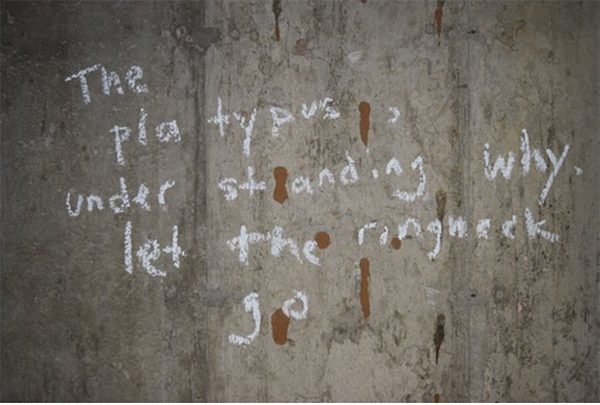 The
pla typus is
under standing why.
let the ringneck
go